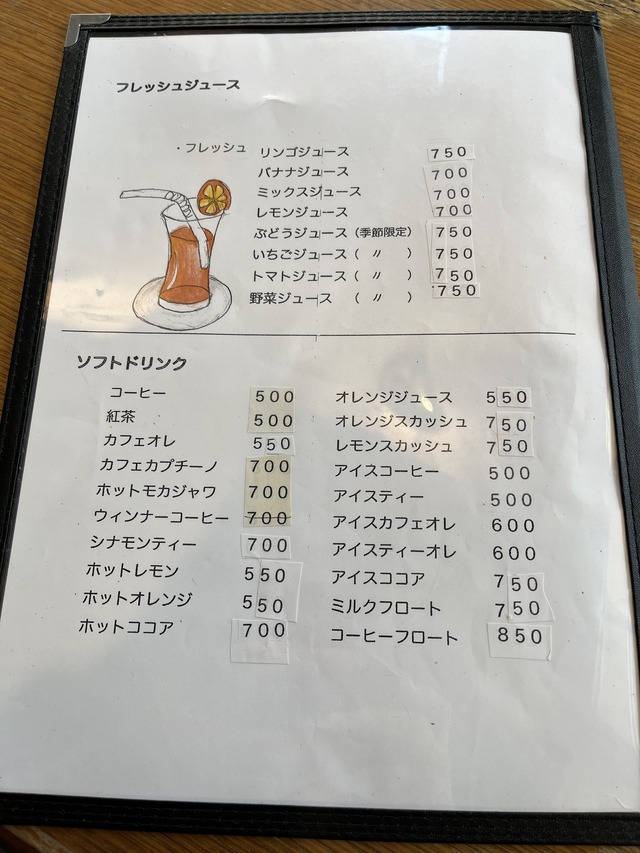 フレッシュジュース
・フレッシュ リンゴジュース 750
バナナジュース 700
ミックスジュース 700
レモンジュース 700
ぶどうジュース（季節限定） 750
いちごジュース（ 〃 ） 750
トマトジュース（ 〃 ） 750
野菜ジュース（ 〃 ） 750
ソフトドリンク
コーヒー 500
紅茶 500
カフェオレ 550
カフェカプチーノ 700
ホットモカジャワ 700
ウィンナーコーヒー 700
シナモンティー 700
ホットレモン 550
ホットオレンジ 550
ホットココア 700
オレンジジュース 550
オレンジスカッシュ 750
レモンスカッシュ 750
アイスコーヒー 500
アイスティー 500
アイスカフェオレ 600
アイスティーオレ 600
アイスココア 750
ミルクフロート 750
コーヒーフロート 850